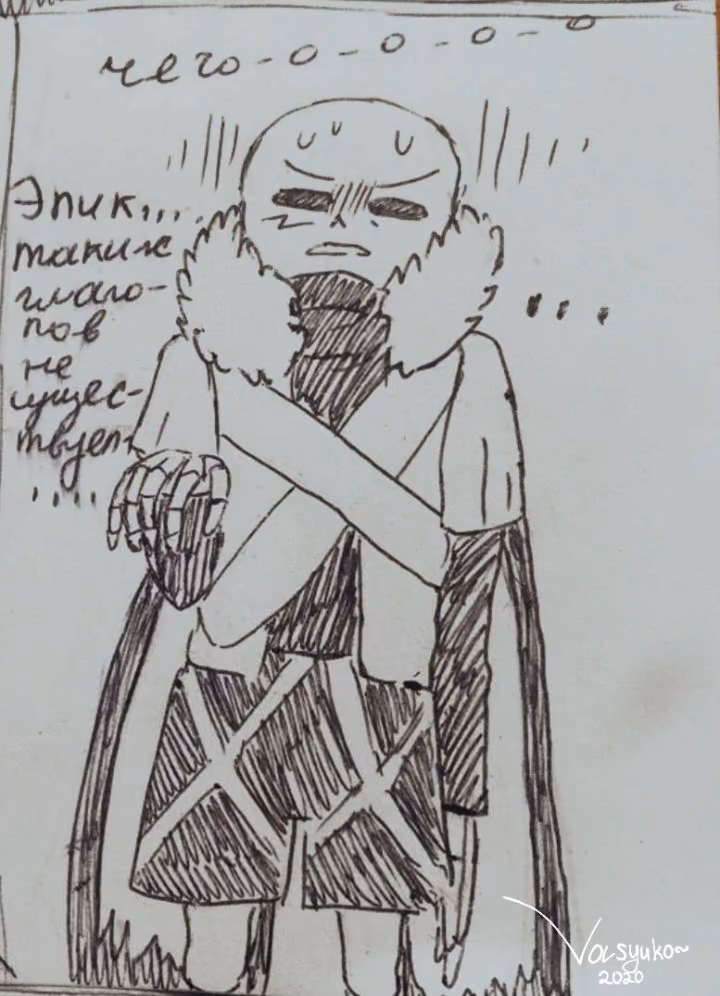 чего-о-о-о-о
Эпик...
таких
глаго-
лов
не
сущес-
твует
....
...
Vasyuko~
2020